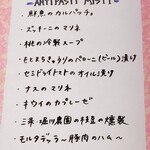 ANTIPASTI MISTI
・鮮魚のカルパッチョ
・ズッキーニのマリネ
・桃の冷製スープ
・もともときゅうりのパローニ(ビール)漬け
・セミドライトマトのオイル漬け
・ナスのマリネ
・キウイのカプレーゼ
・三条・堀川農園の枝豆の燻製
・モルタデッラ〜豚肉のハム〜